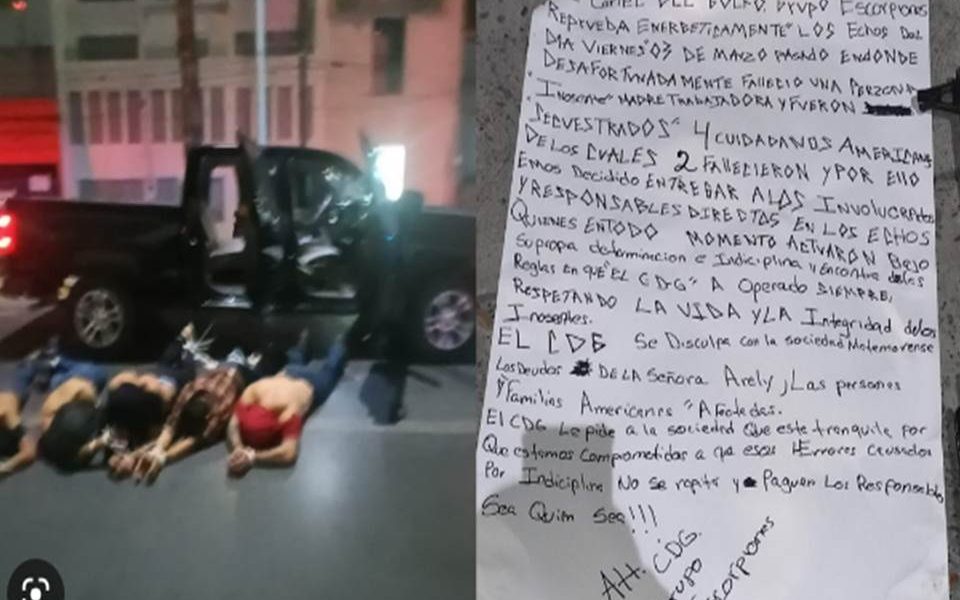 CARTEL DEL GOLFO, GRUPO ESCORPIONES
REPRUEBA ENERGETICAMENTE" LOS ECHOS DEL
DIA VIERNES 03 DE MARZO PASADO ENDONDE
DESAFORTUNADAMENTE FALLECIO UNA PERZONA
"INOSENTE" MADRE TRABAJADORA Y FUERON
"SECUESTRADOS" 4 CUIDADANOS AMERICANOS
DE LOS CUALES 2 FALLECIERON Y POR ELLO
EMOS DECIDIDO ENTREGAR A LOS INVOLUCRADOS
Y RESPONSABLES DIRECTOS EN LOS ECHOS
QUIENES ENTODO MOMENTO ACTUARON BAJO
SU propia determinacion e Indiciplina y Encontra de las
Reglas en QUE "EL CDG" A Operado SIEMPRE,
RESPETANDO LA VIDA Y LA Integridad de los
Inosentes.
EL CDG Se Disculpa con la sociedad Matamorense
Los Deudos DE LA SEÑORA Arely, y Las personas
y Familias Americanas "Afectadas.
El CDG Le pide a la sociedad Que este tranquila por
Que estamos Comprometidos a que esos "Errores Causados
Por Indiciplina No se repita y Paguen Los Responsables
Sea Quien Sea!!!
AH. CDG.
GRUPO
Escorpiones